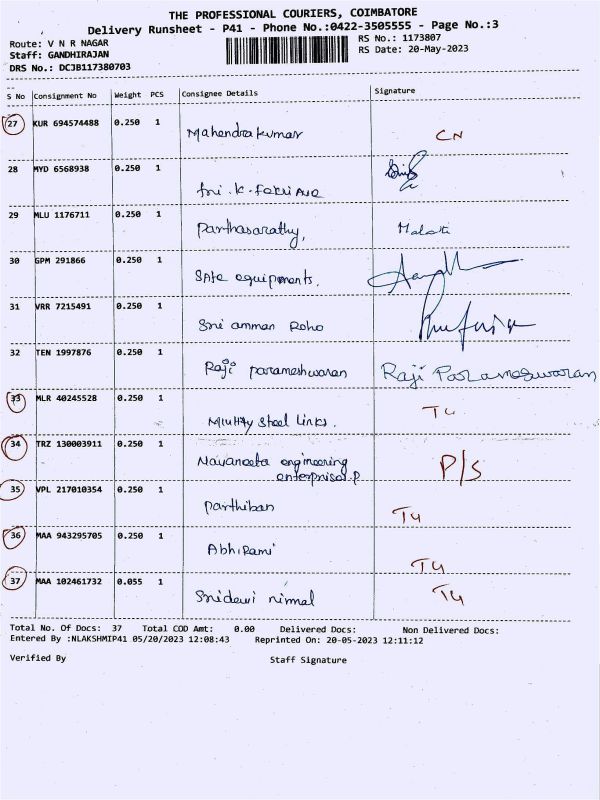 THE PROFESSIONAL COURIERS, COIMBATORE
Delivery Runsheet - P41 - Phone No.:0422-3505555 - Page No.:3
Route: V N R NAGAR
RS No.: 1173807
Staff: GANDHIRAJAN
RS Date: 20-May-2023
DRS No.: DCJB117380703
S No Consignment No Weight PCS Consignee Details Signature
27 KUR 694574488 0.250 1 Mahendrakumar CN
28 MYD 6568938 0.250 1
29 MLU 1176711 0.250 1 Parthasarathy, Malati
30 GPM 291866 0.250 1 Safe equipments.
31 VRR 7215491 0.250 1 Sri amman Roho
32 TEN 1997876 0.250 1 Raji parameshwaran Raji Parameswaran
33 MLR 40245528 0.250 1 Steel Links. T4
34 TRZ 130003911 0.250 1 Navaneeta engineering P/S
enterprises.P
35 VPL 217010354 0.250 1 Parthiban T4
36 MAA 943295705 0.250 1 Abhirami T4
37 MAA 102461732 0.055 1 Sridevi nirmal T4
Total No. Of Docs: 37 Total COD Amt: 0.00 Delivered Docs: Non Delivered Docs:
Entered By :NLAKSHMIP41 05/20/2023 12:08:43 Reprinted On: 20-05-2023 12:11:12
Verified By Staff Signature